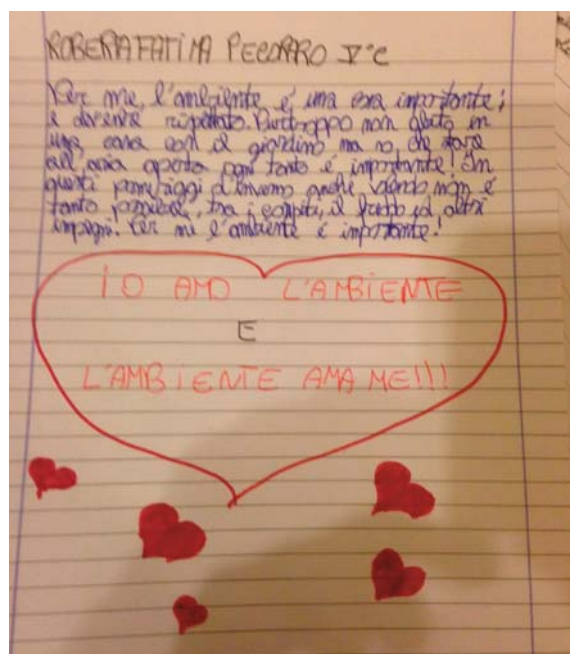 ROBERTA FATIMA PECORARO V°C
Per me, l'ambiente, é una cosa importante;
e dovrebbe rispettato. Purtroppo non abito in
una casa con il giardino ma so che stare
all'aria aperta ogni tanto é importante! In
questi pomeriggi d'inverno anche volendo non é
tanto possibile, tra i compiti, il freddo ed altri
impegni. Per me l'ambiente é importante!
IO AMO L'AMBIENTE
E
L'AMBIENTE AMA ME!!!